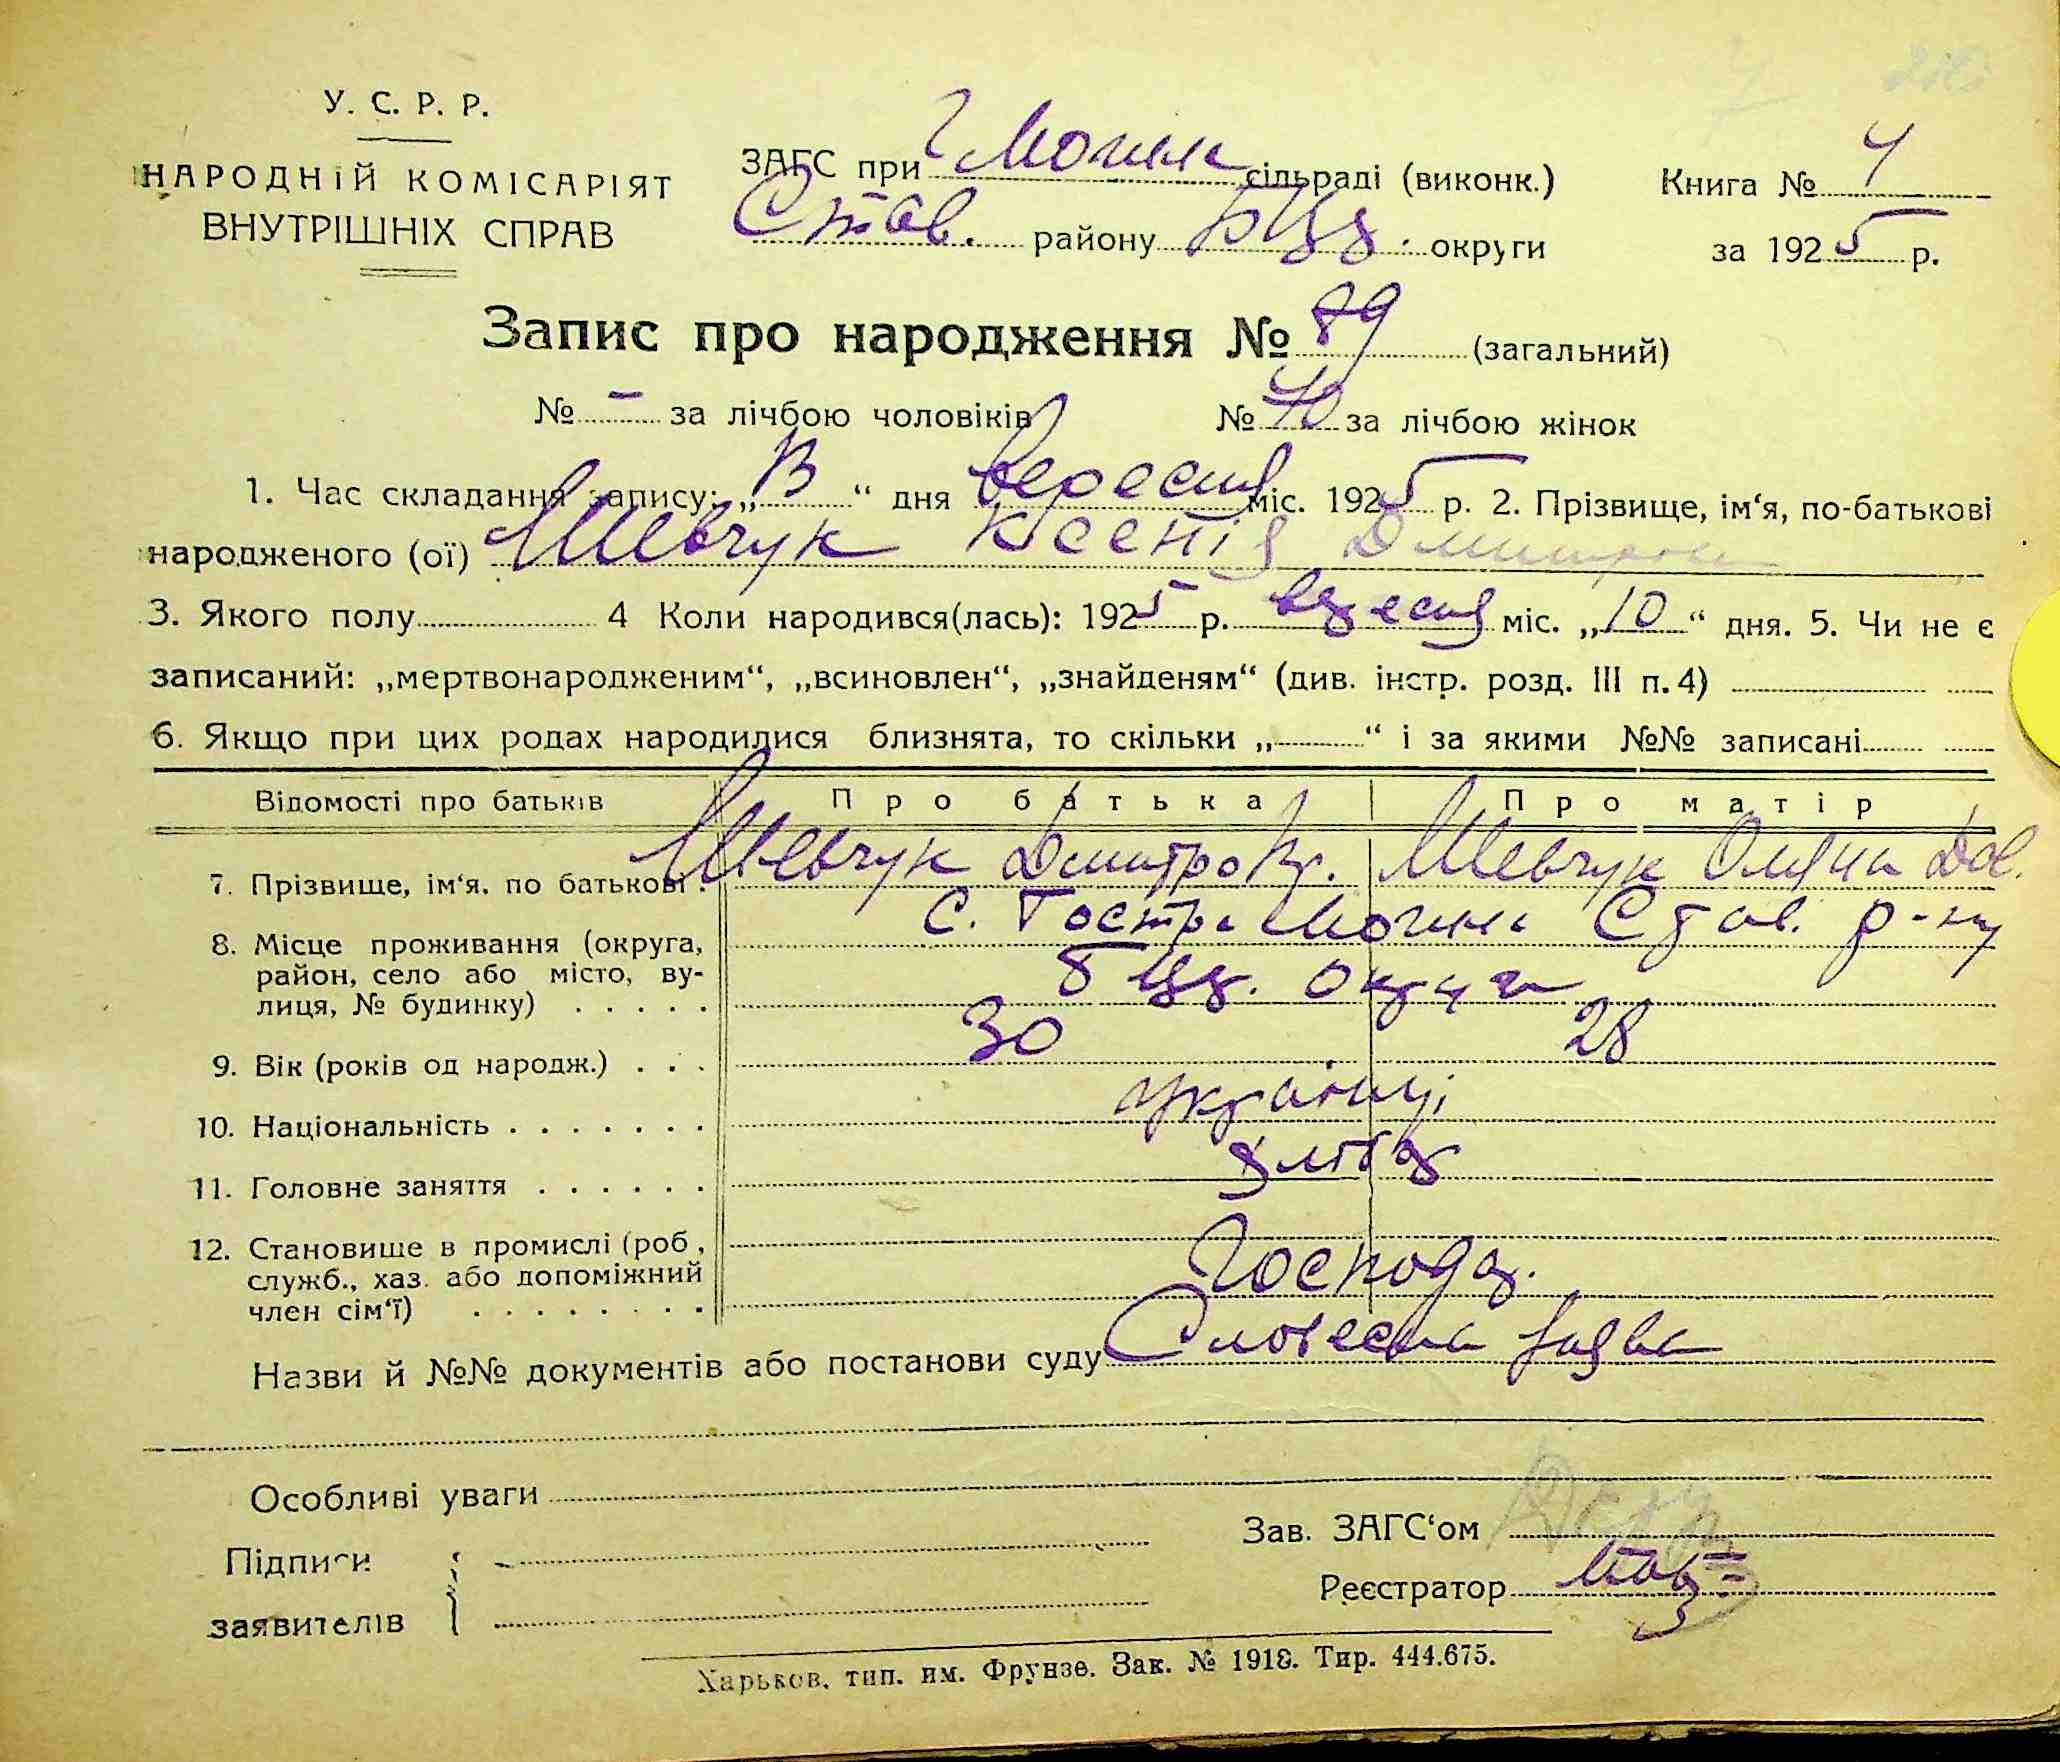 У. С. Р. Р.
НАРОДНІЙ КОМІСАРІЯТ
ВНУТРІШНІХ СПРАВ
ЗАГС при Г Могил сільраді (виконк.)
Став. району БЦр. округи
Книга № 4
за 1925 р.
Запис про народження № 89 (загальний)
№ – за лічбою чоловіків № 40 за лічбою жінок
1. Час складання запису: „13“ дня вересня міс. 1925 р. 2. Прізвище, ім‘я, по-батькові
народженого (ої) Шевчук Ксенія Дмитров
3. Якого полу 4 Коли народився(лась): 1925 р. вересня міс. „10“ дня. 5. Чи не є
записаний: „мертвонародженим“, „всиновлен“, „знайденям“ (див. інстр. розд. III п. 4)
6. Якщо при цих родах народилися близнята, то скільки „ “ і за якими №№ записані
Відомості про батьків Про батька Про матір
7. Прізвище, ім‘я. по батькові. Шевчук Дмитро Шевчук Оляна
8. Місце проживання (округа, район, село або місто, ву-лиця, № будинку) с. Гостра Могила Став. р-ну
БЦр. округи
9. Вік (років од народж.) 30 28
10. Національність українці
11. Головне заняття хлібор
12. Становище в промислі (роб., служб., хаз. або допоміжний член сім‘ї) Господар.
Назви й №№ документів або постанови суду Словесна заява
Особливі уваги
Підписи
заявителів
Зав. ЗАГС‘ом
Реєстратор
Харьков, тип. им. Фрунзе. Зак. № 1918. Тир. 444.675.